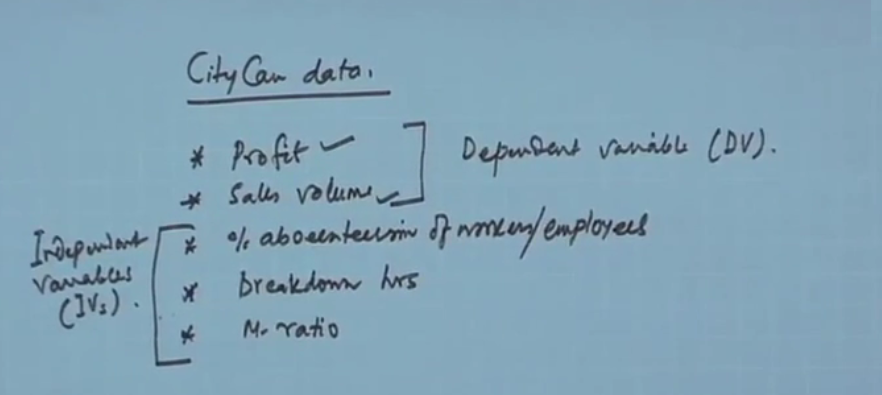 CityCan data.
* Profit ✓
* Sales volume ✓
Dependent variable (DV).
Independent
variables
(IVs).
* % absenteeism of workers/employees
* Breakdown hrs
* M-ratio